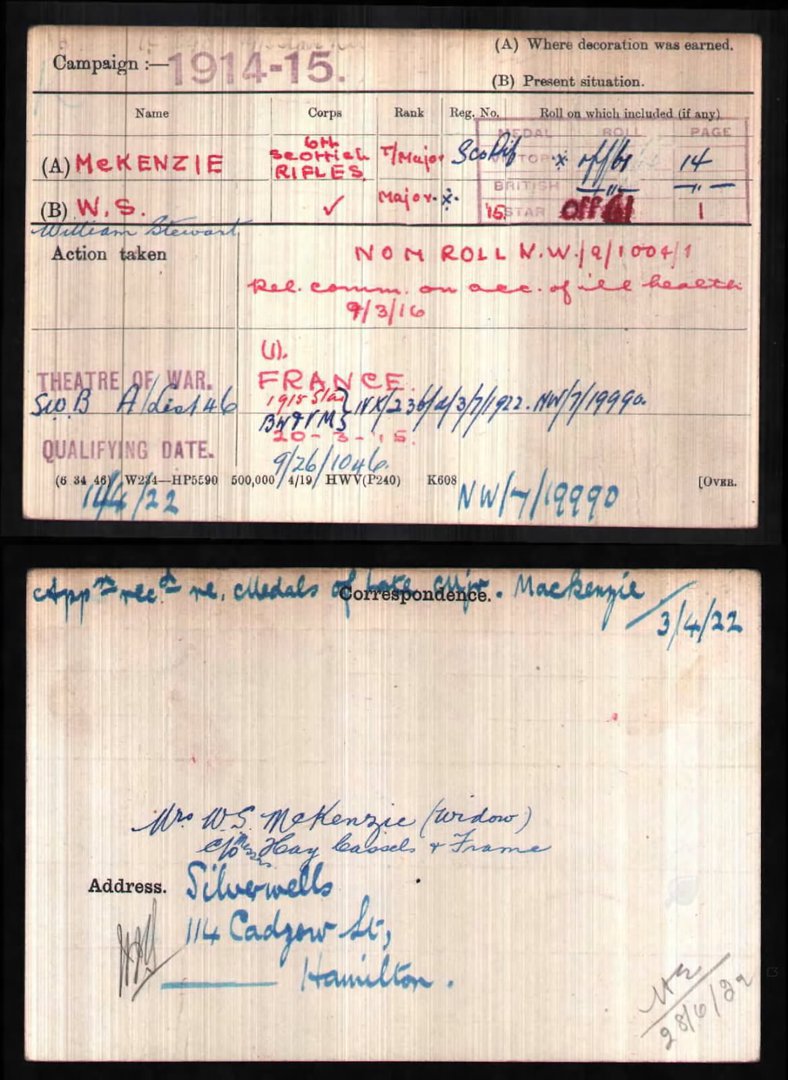 (A) Where decoration was earned.
Campaign :— 1914-15.
(B) Present situation.
Name Corps Rank Reg. No. Roll on which included (if any).
MEDAL ROLL PAGE
(A) McKENZIE 6th Scottish RIFLES T/Major Sco Rif VICTORY off/61 14
BRITISH —"— —"—
(B) W.S. ✓ Major. '15 STAR Off 61 1
William Stewart
Action taken NOM ROLL N.W./9/1004/1
Rel. comm. on acc. of ill health
9/3/16
(1).
THEATRE OF WAR. FRANCE.
1915 Star
A/List 46 BW & VM NW/7/19990.
QUALIFYING DATE. 20-3-15.
9/26/1046.
(6 34 46) W234—HP5590 500,000 4/19 HWV(P240) K608 [OVER.
11/4/22 NW/7/19990
Appn recd re. Medals of late Mjr. Mackenzie
Correspondence.
3/4/22
Mrs W.S. McKenzie (Widow)
c/o Messrs Hay Cassels & Frame
Address. Silverwells
114 Cadzow St,
Hamilton.
28/6/22